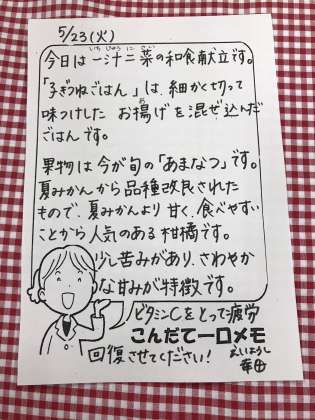 5/23(火)
今日は一汁二菜の和食献立です。
いちじゅうにさい
「子ぎつねごはん」は、細かく切って
味つけした お揚げを混ぜ込んだ
ごはんです。
果物は今が旬の「あまなつ」です。
夏みかんから品種改良された
もので、夏みかんより甘く、食べやすい
ことから人気のある柑橘です。
少し苦みがあり、さわやか
な甘みが特徴です。
ビタミンCをとって疲労
こんだて一口メモ
回復させてください!